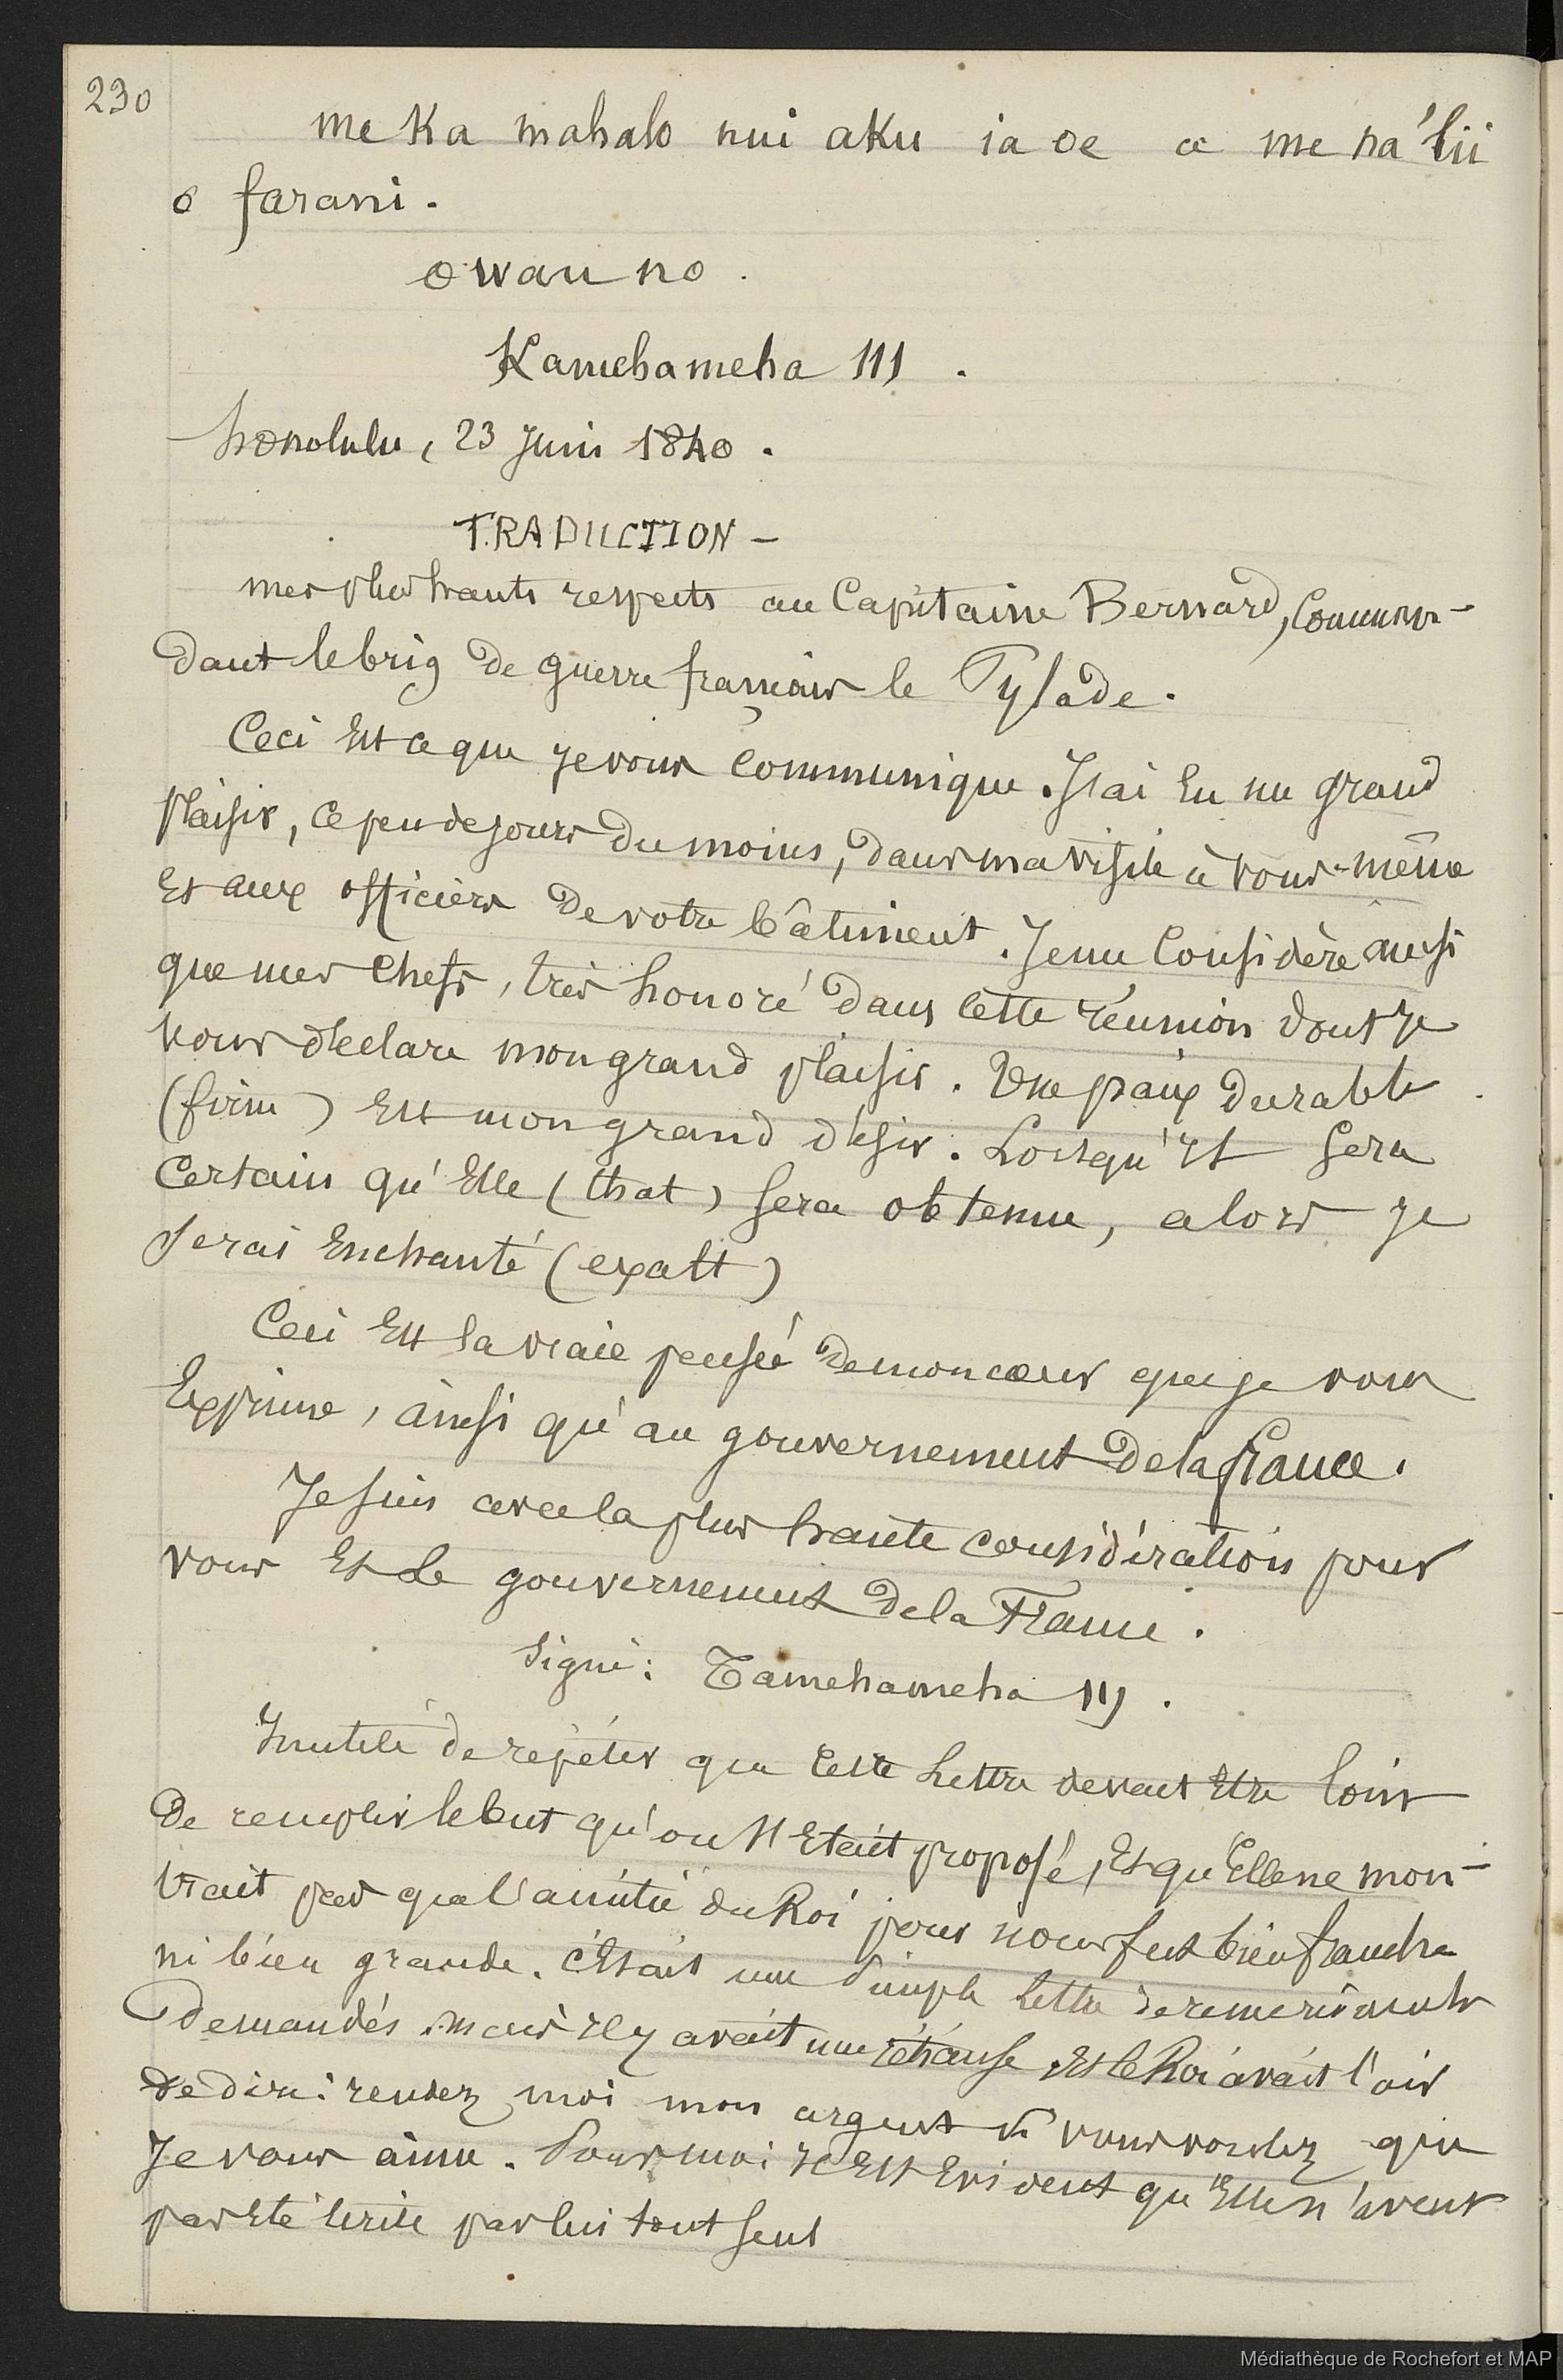 230
me Ka mahalo nui aku ia oe a me na'lii
o farani.
owau no.
Kamehameha III.
honolulu, 23 Juin 1840.
TRADUCTION —
mes plus hauts respects au Capitaine Bernard, Comman-
dant le brig de guerre français le Pylade.
Ceci Est ce que je vous Communique. J'ai Eu un grand
plaisir, ce peu de jours du moins, dans ma visite à vous-même
Et aux officiers de votre bâtiment. Je me Considère ainsi
que mes Chefs, très honoré dans cette réunion dont je
vous déclare mon grand plaisir. Une paix durable
(firm) Est mon grand désir. Lorsqu'il sera
Certain qu'Elle (that) sera obtenue, alors je
serai Enchanté (exalt)
Ceci Est la vraie pensée de mon cœur que je vous
Exprime, ainsi qu'au gouvernement de la france.
Je suis avec la plus haute considération pour
vous Et le gouvernement de la France.
Signé: Tamehameha III.
Inutile de répéter que Cette Lettre devait Etre loin
de remplir le but qu'on s'Etait proposé, Et qu'Elle ne mon-
trait pas que l'amitié du Roi pour nous fut bien franche
ni bien grande. C'Etait une simple lettre de remerciments
demandés. mais il y avait une clause Et le Roi avait l'air
de dire: rendez moi mon argent si vous voulez que
Je vous aime. Pour moi il Est Evident qu'Elle n'avait
pas Eté écrite par lui tout seul
Médiathèque de Rochefort et MAP